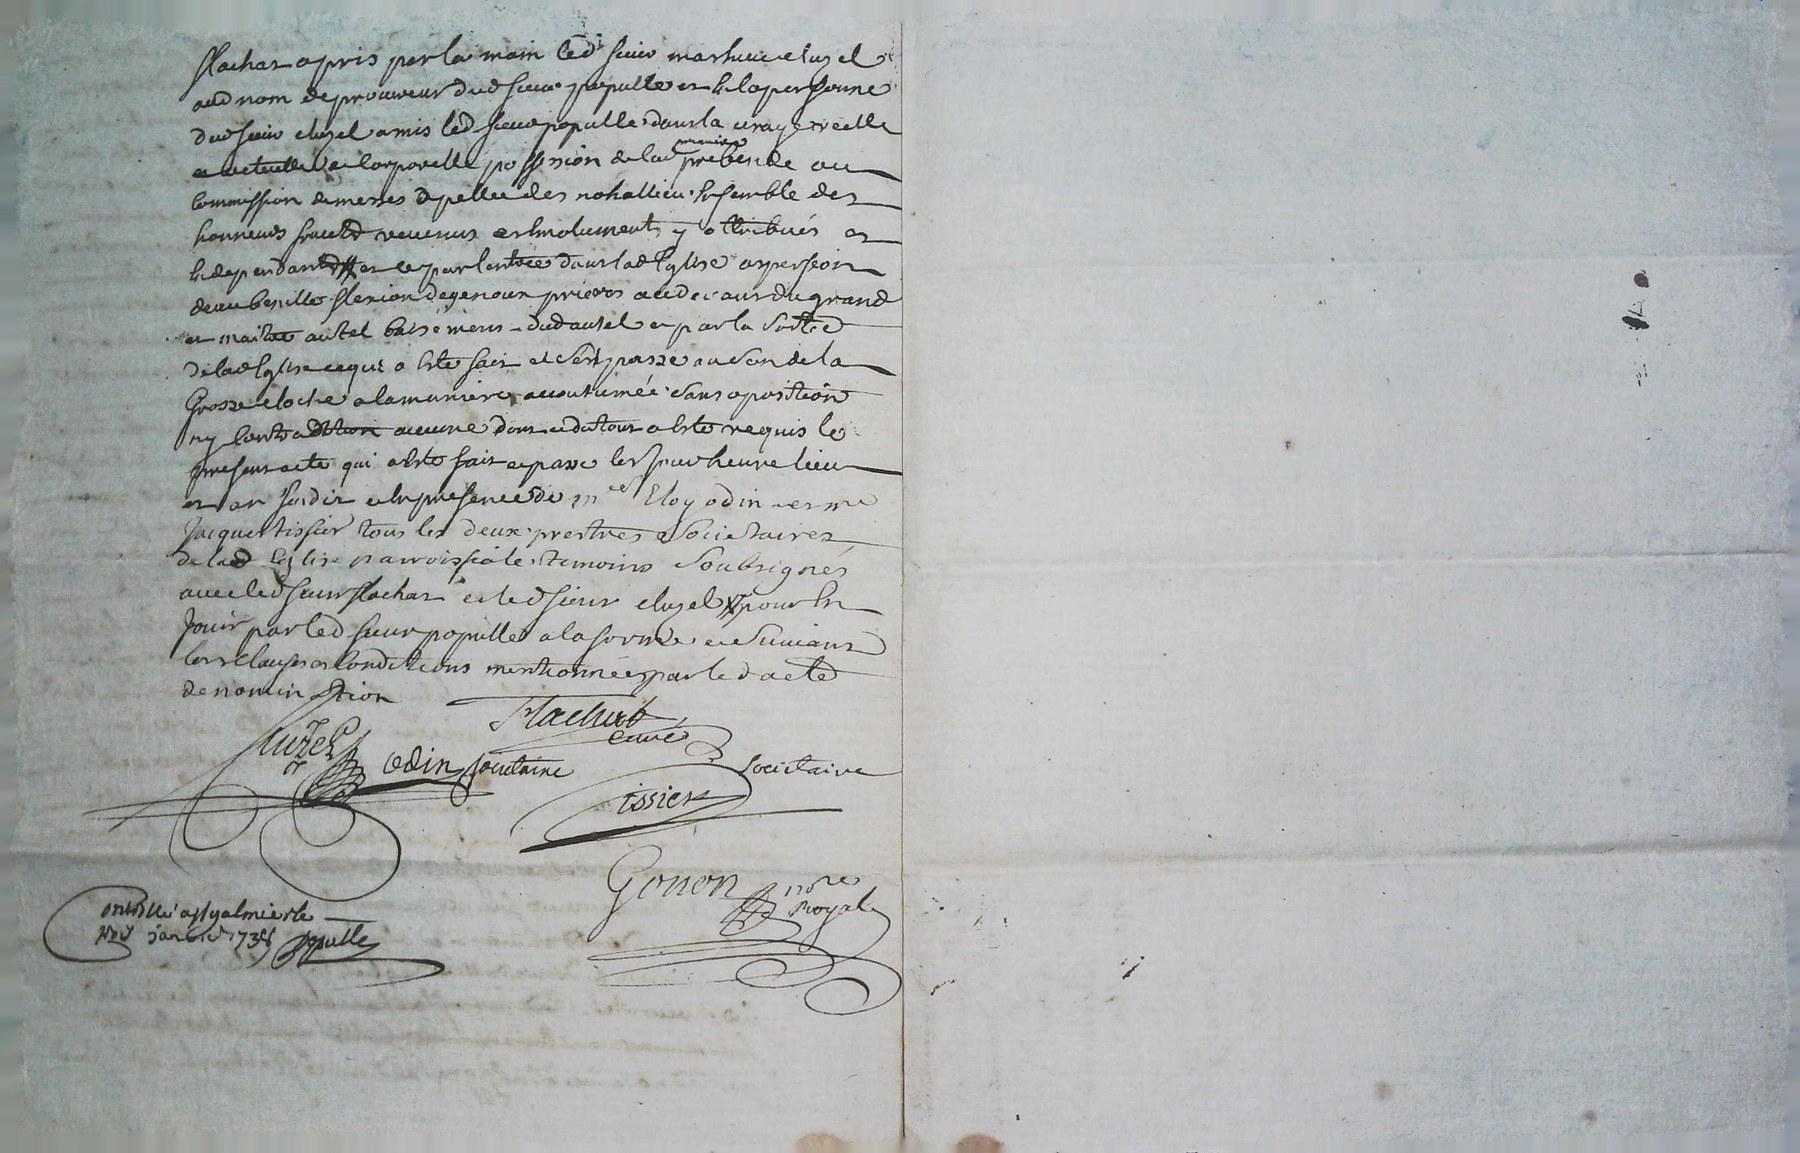 flachat a pris par la main led sieur mathieu cluzel
aud nom de procureur dud sieur populle et en la personne
dud sieur cluzel a mis led sieur populle dans la vraye reelle
actuelle et corporelle possession de lad premiere prebende ou
commission de messes apellee des nohallieu ensemble des
honneurs fruits revenus et emoluments y attribués et
en dependants et ce par lentrée dans lad Eglise aspersion
deau benitte flexion de genoux prieres au devant du grand
et maitre autel baisement dud autel et par la sortie
de lad Eglise ce qui a este fait et sest passé au son de la
Grosse cloche a la maniere accoutumée sans oposition
ny contradition aucune dont et du tout a este requis le
present acte qui a este fait et passé les jour heure lieu
et an susdit en presence de mre Eloy odin et mre
Jacque tissier tous les deux prestres societaires
de lad Eglise parroissiale temoins soubsignés
avec led sieur flachat et led sieur cluzel pour en
Jouir par led sieur populle a la forme et suivant
les clauses et conditions mentionnées par led acte
de nomination
Flachat
curé
Cluzel
odin societaire
societaire
Tissier
Gonon nore
Royal
Controllé a st galmier le
janvier 173
populle